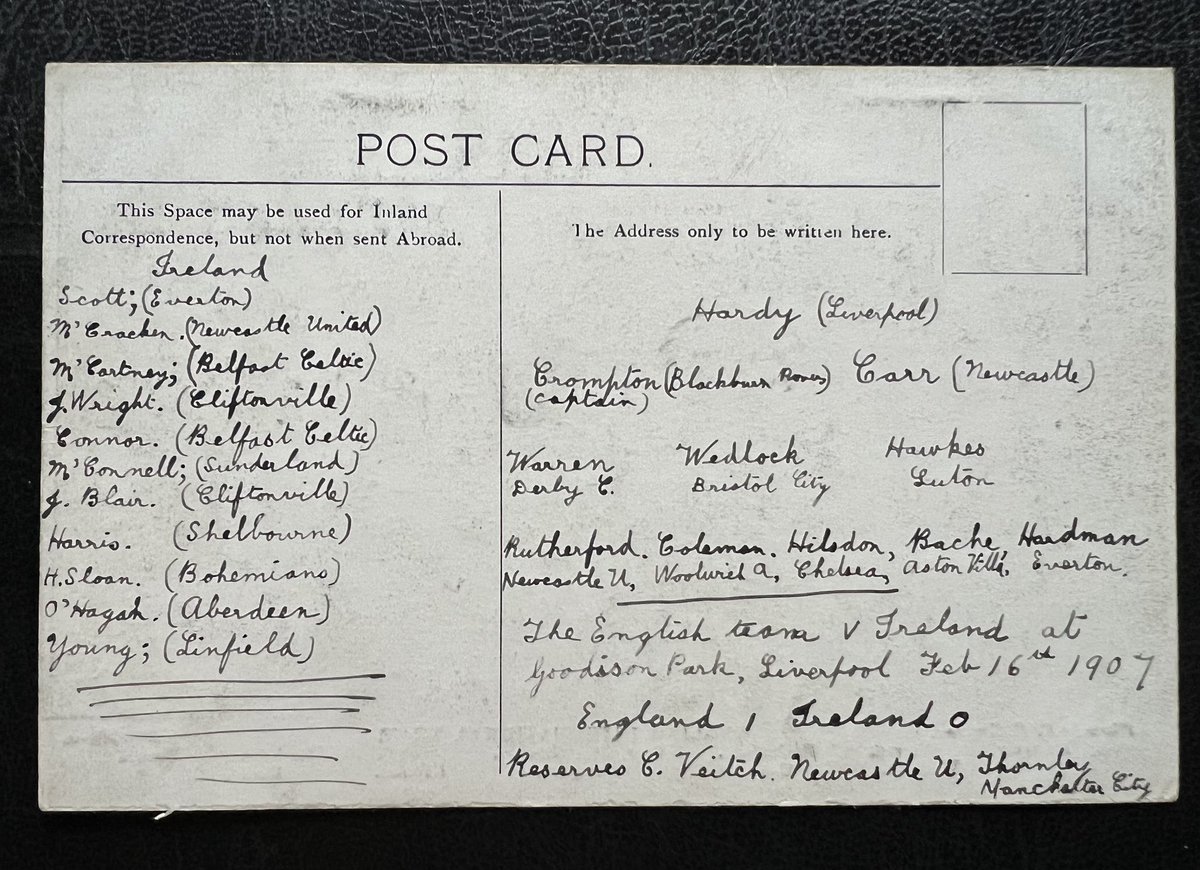 POST CARD.
This Space may be used for Inland
Correspondence, but not when sent Abroad.
Ireland
Scott; (Everton)
McCracken. (Newcastle United)
McCartney; (Belfast Celtic)
J. Wright. (Cliftonville)
Connor. (Belfast Celtic)
McConnell; (Sunderland)
J. Blair. (Cliftonville)
Harris. (Shelbourne)
H. Sloan. (Bohemians)
O'Hagan. (Aberdeen)
Young; (Linfield)
The Address only to be written here.
Hardy (Liverpool)
Crompton (Blackburn Rovers) Carr (Newcastle)
(captain)
Warren Wedlock Hawkes
Derby C. Bristol City Luton
Rutherford. Coleman. Hilsdon, Bache, Hardman
Newcastle U, Woolwich A, Chelsea, Aston Villa, Everton.
The English team v Ireland at
Goodison Park, Liverpool Feb 16th 1907
England 1 Ireland 0
Reserves C. Veitch. Newcastle U, Thornley
Manchester City